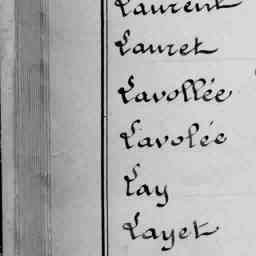 Laurent
Lauret
Lavollée
Lavolée
Lay
Layet